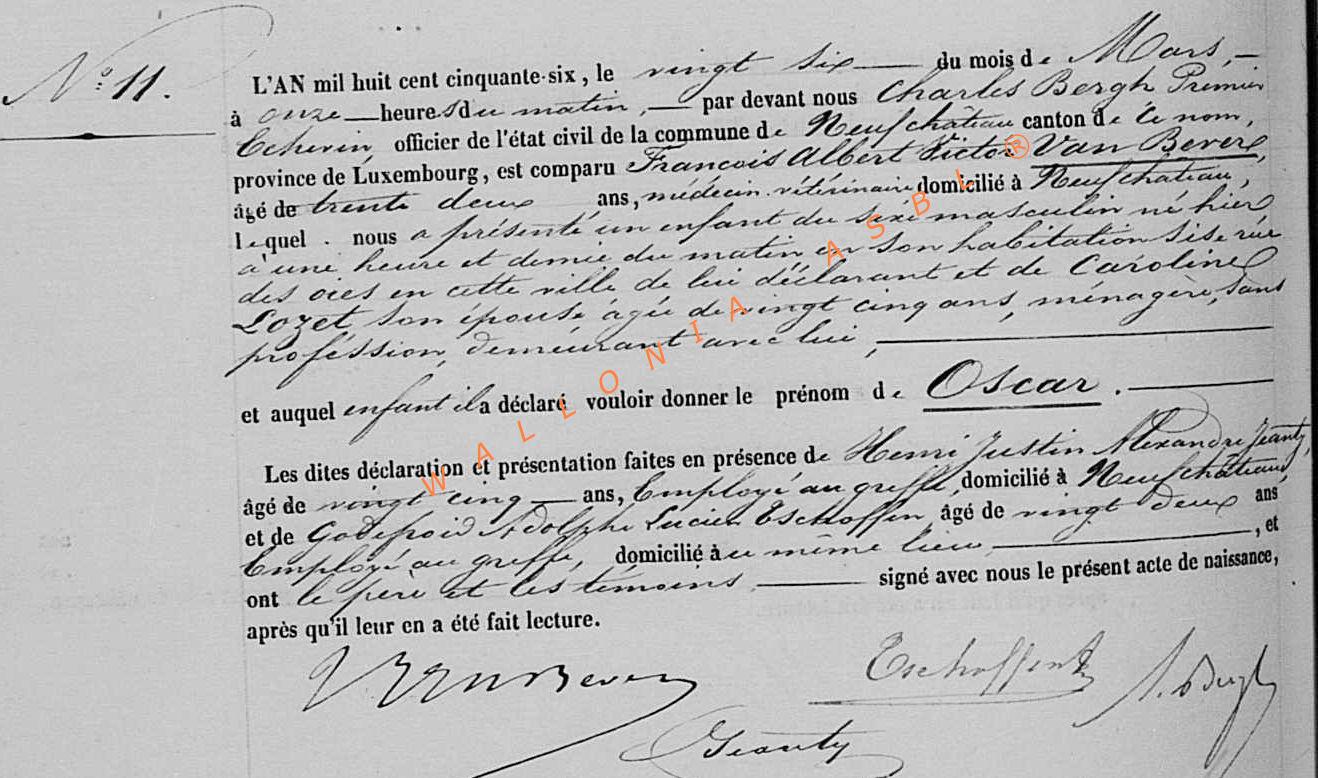 N.° 11.
L'AN mil huit cent cinquante-six, le vingt six du mois de Mars,
à onze heures du matin, par devant nous Charles Bergh Premier
Echevin, officier de l'état civil de la commune de Neufchâteau canton de ce nom,
province de Luxembourg, est comparu François Albert Victor Van Bever,
âgé de trente deux ans, médecin vétérinaire domicilié à Neufchateau,
lequel nous a présenté un enfant du sexe masculin né hier
à une heure et demie du matin en son habitation sise rue
des oies en cette ville de lui déclarant et de Caroline
Lozet, son épouse âgée de vingt cinq ans, ménagère, sans
profession, demeurant avec lui,
et auquel enfant il a déclaré vouloir donner le prénom de Oscar.
Les dites déclaration et présentation faites en présence de Henri Justin Alexandre Jeanty,
âgé de vingt cinq ans, Employé au greffe, domicilié à Neufchâteau,
et de Godefroid Adolphe Lucien Eschoffen, âgé de vingt deux ans
Employé au greffe, domicilié au même lieu, et
ont le père et les témoins signé avec nous le présent acte de naissance,
après qu'il leur en a été fait lecture.
VanBever Eschoffen
Jeanty
WALLONIA ASBL ®